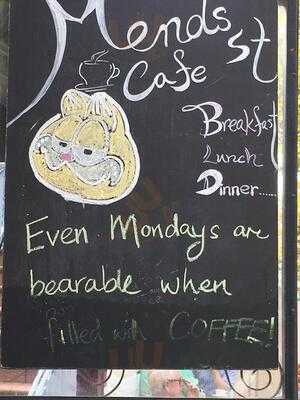 Mends st
Cafe
Breakfast
Lunch
Dinner......
Even Mondays are
bearable when
filled with COFFEE!